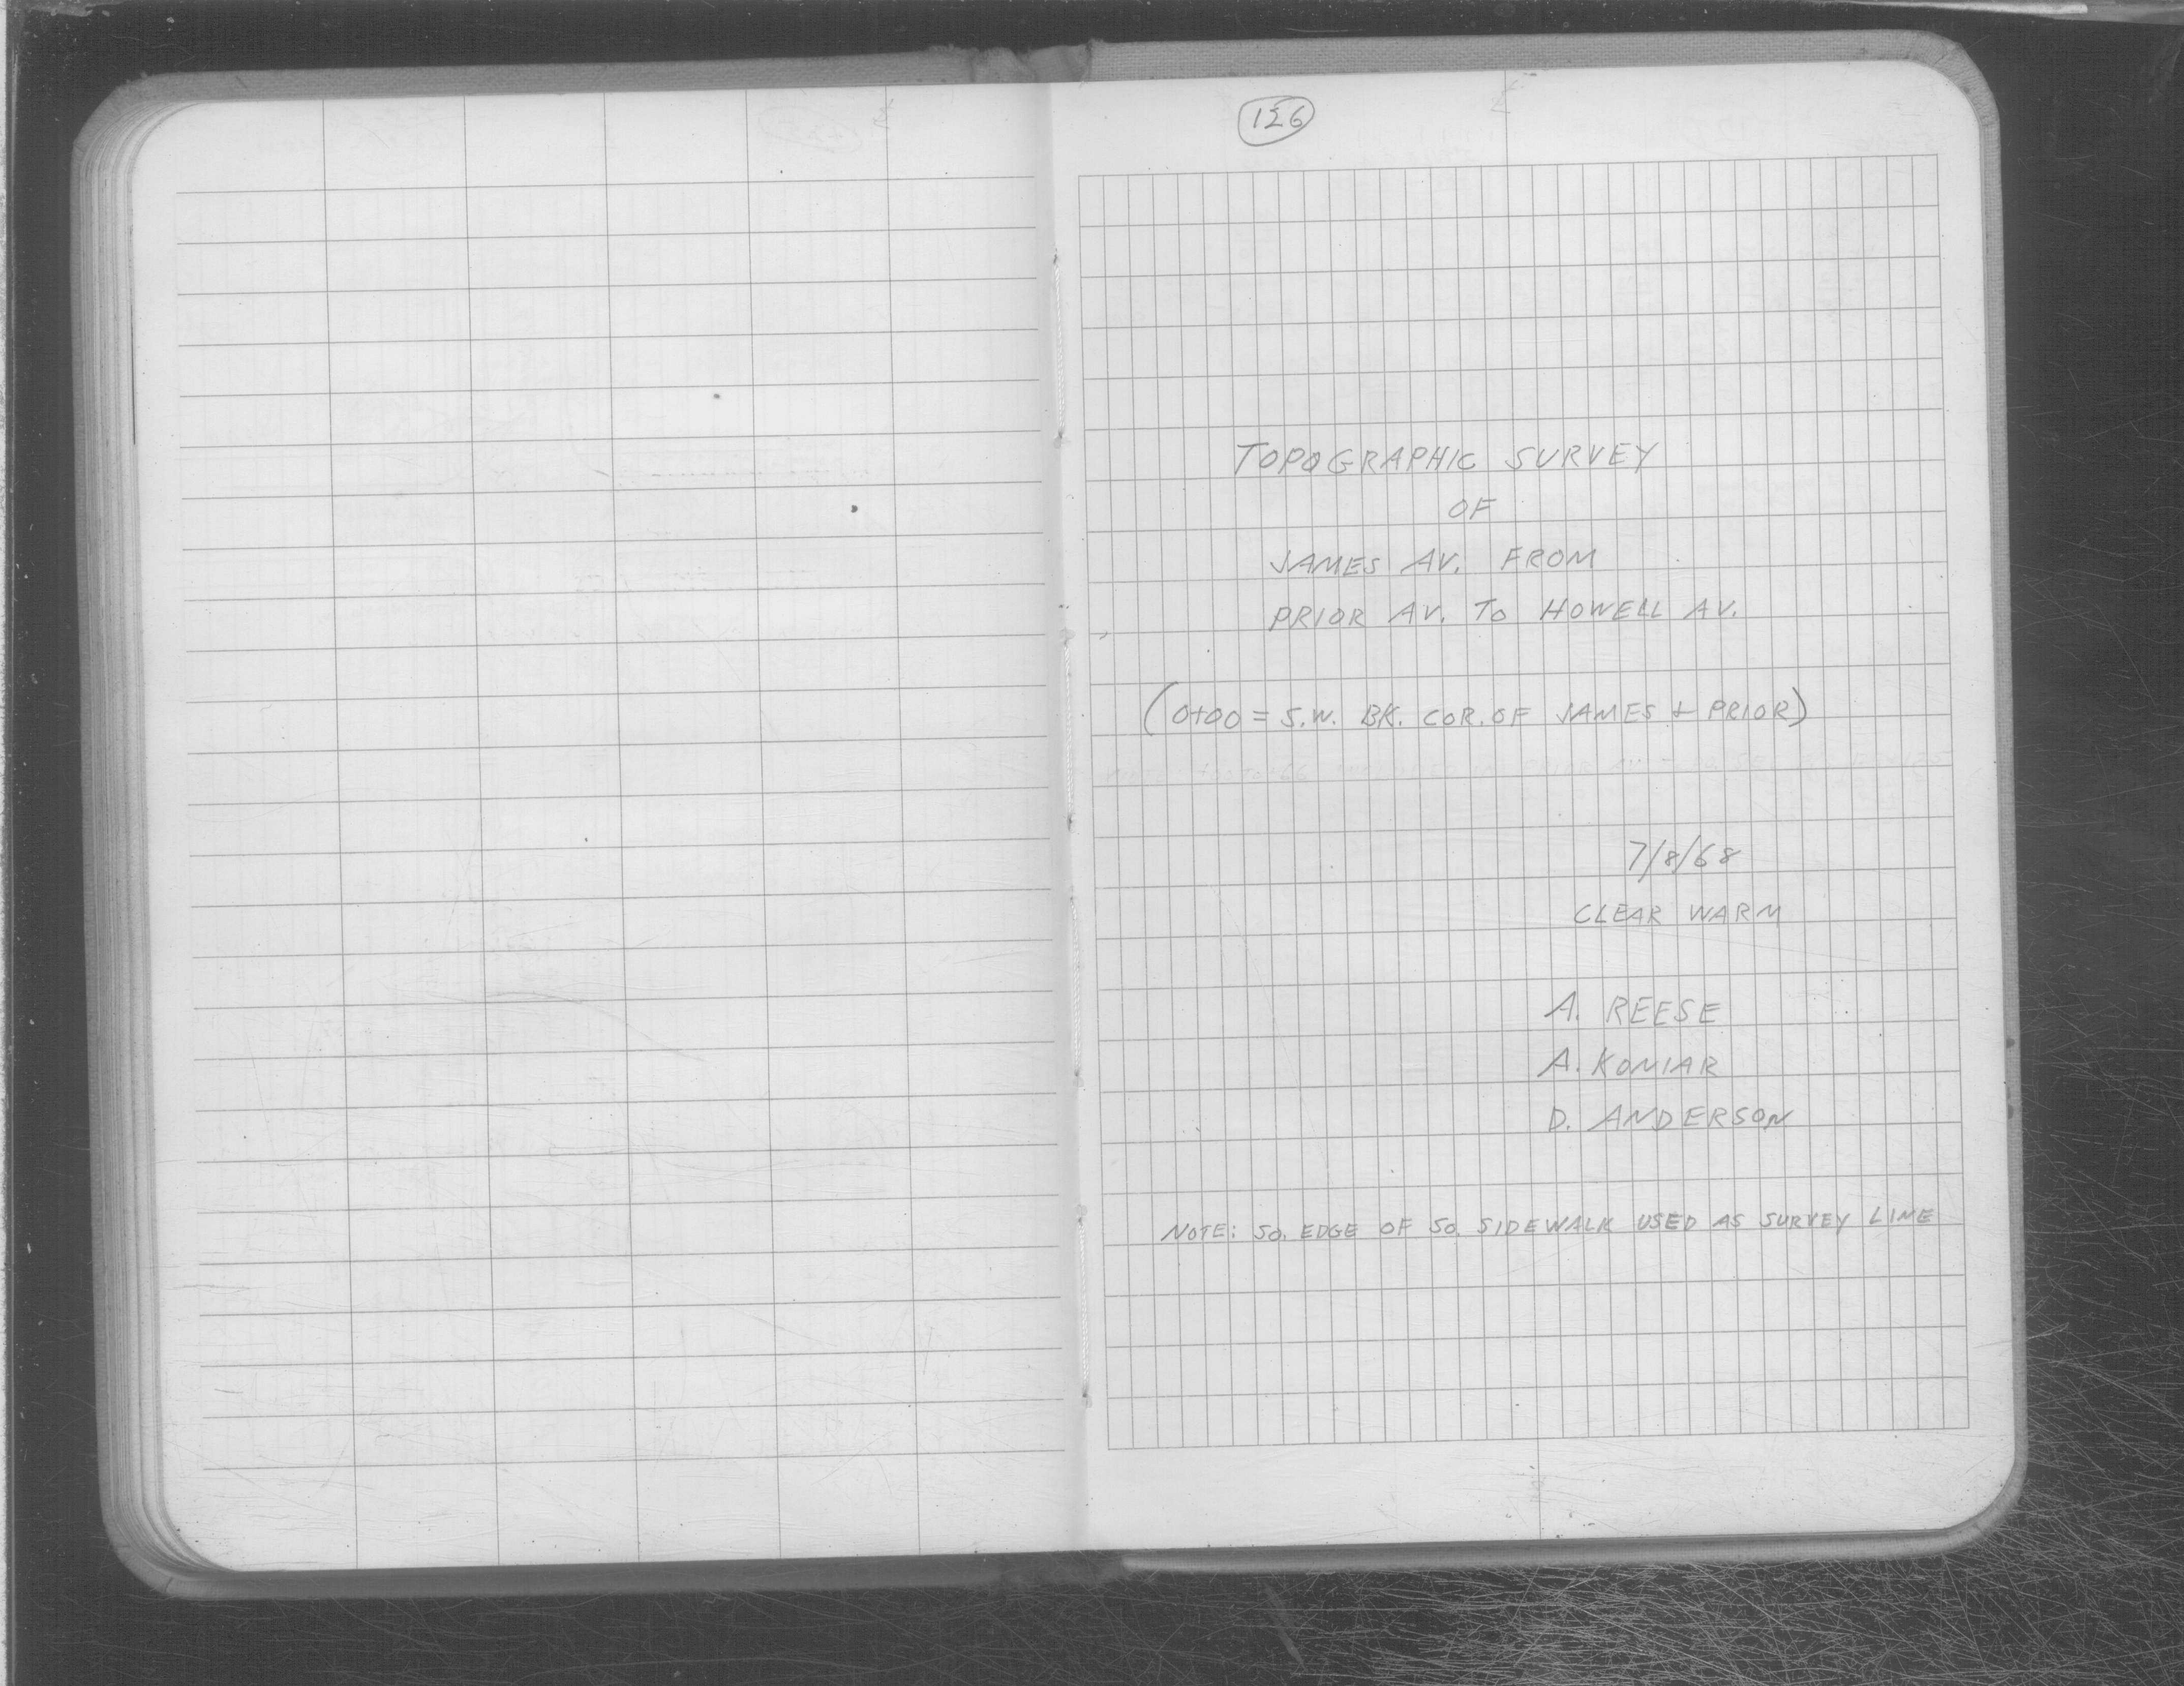 126
TOPOGRAPHIC SURVEY
OF
JAMES AV. FROM
PRIOR AV. TO HOWELL AV.
(0+00 = S.W. BK. COR. OF JAMES & PRIOR)
7/8/68
CLEAR WARM
A. REESE
A. KONIAR
D. ANDERSON
NOTE: SO. EDGE OF SO. SIDEWALK USED AS SURVEY LINE